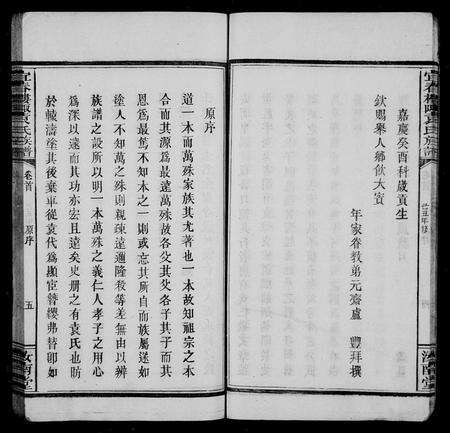 宜春樓陳袁氏族譜
嘉慶癸酉科歲貢生
欽賜舉人鄉飲大賓
年家眷教弟元齋盧 豐拜撰
原序
道一本而萬殊家族其尤著也一本故知祖宗之本
合而其源爲最遠萬殊故各父其父各子其子而其
恩爲最篤不知本之一則或忘其所自而族屬遂如
塗人不知萬之殊則親疎遠邇隆殺等差無由以辨
族譜之設所以明一本萬殊之義仁人孝子之用心
爲深以遠而其功亦宏且遠矣史册之有袁氏也昉
於轅濤塗其後棄車從袁代爲顯宦簪纓弗替卽如
卷首
原序
五
汝南堂